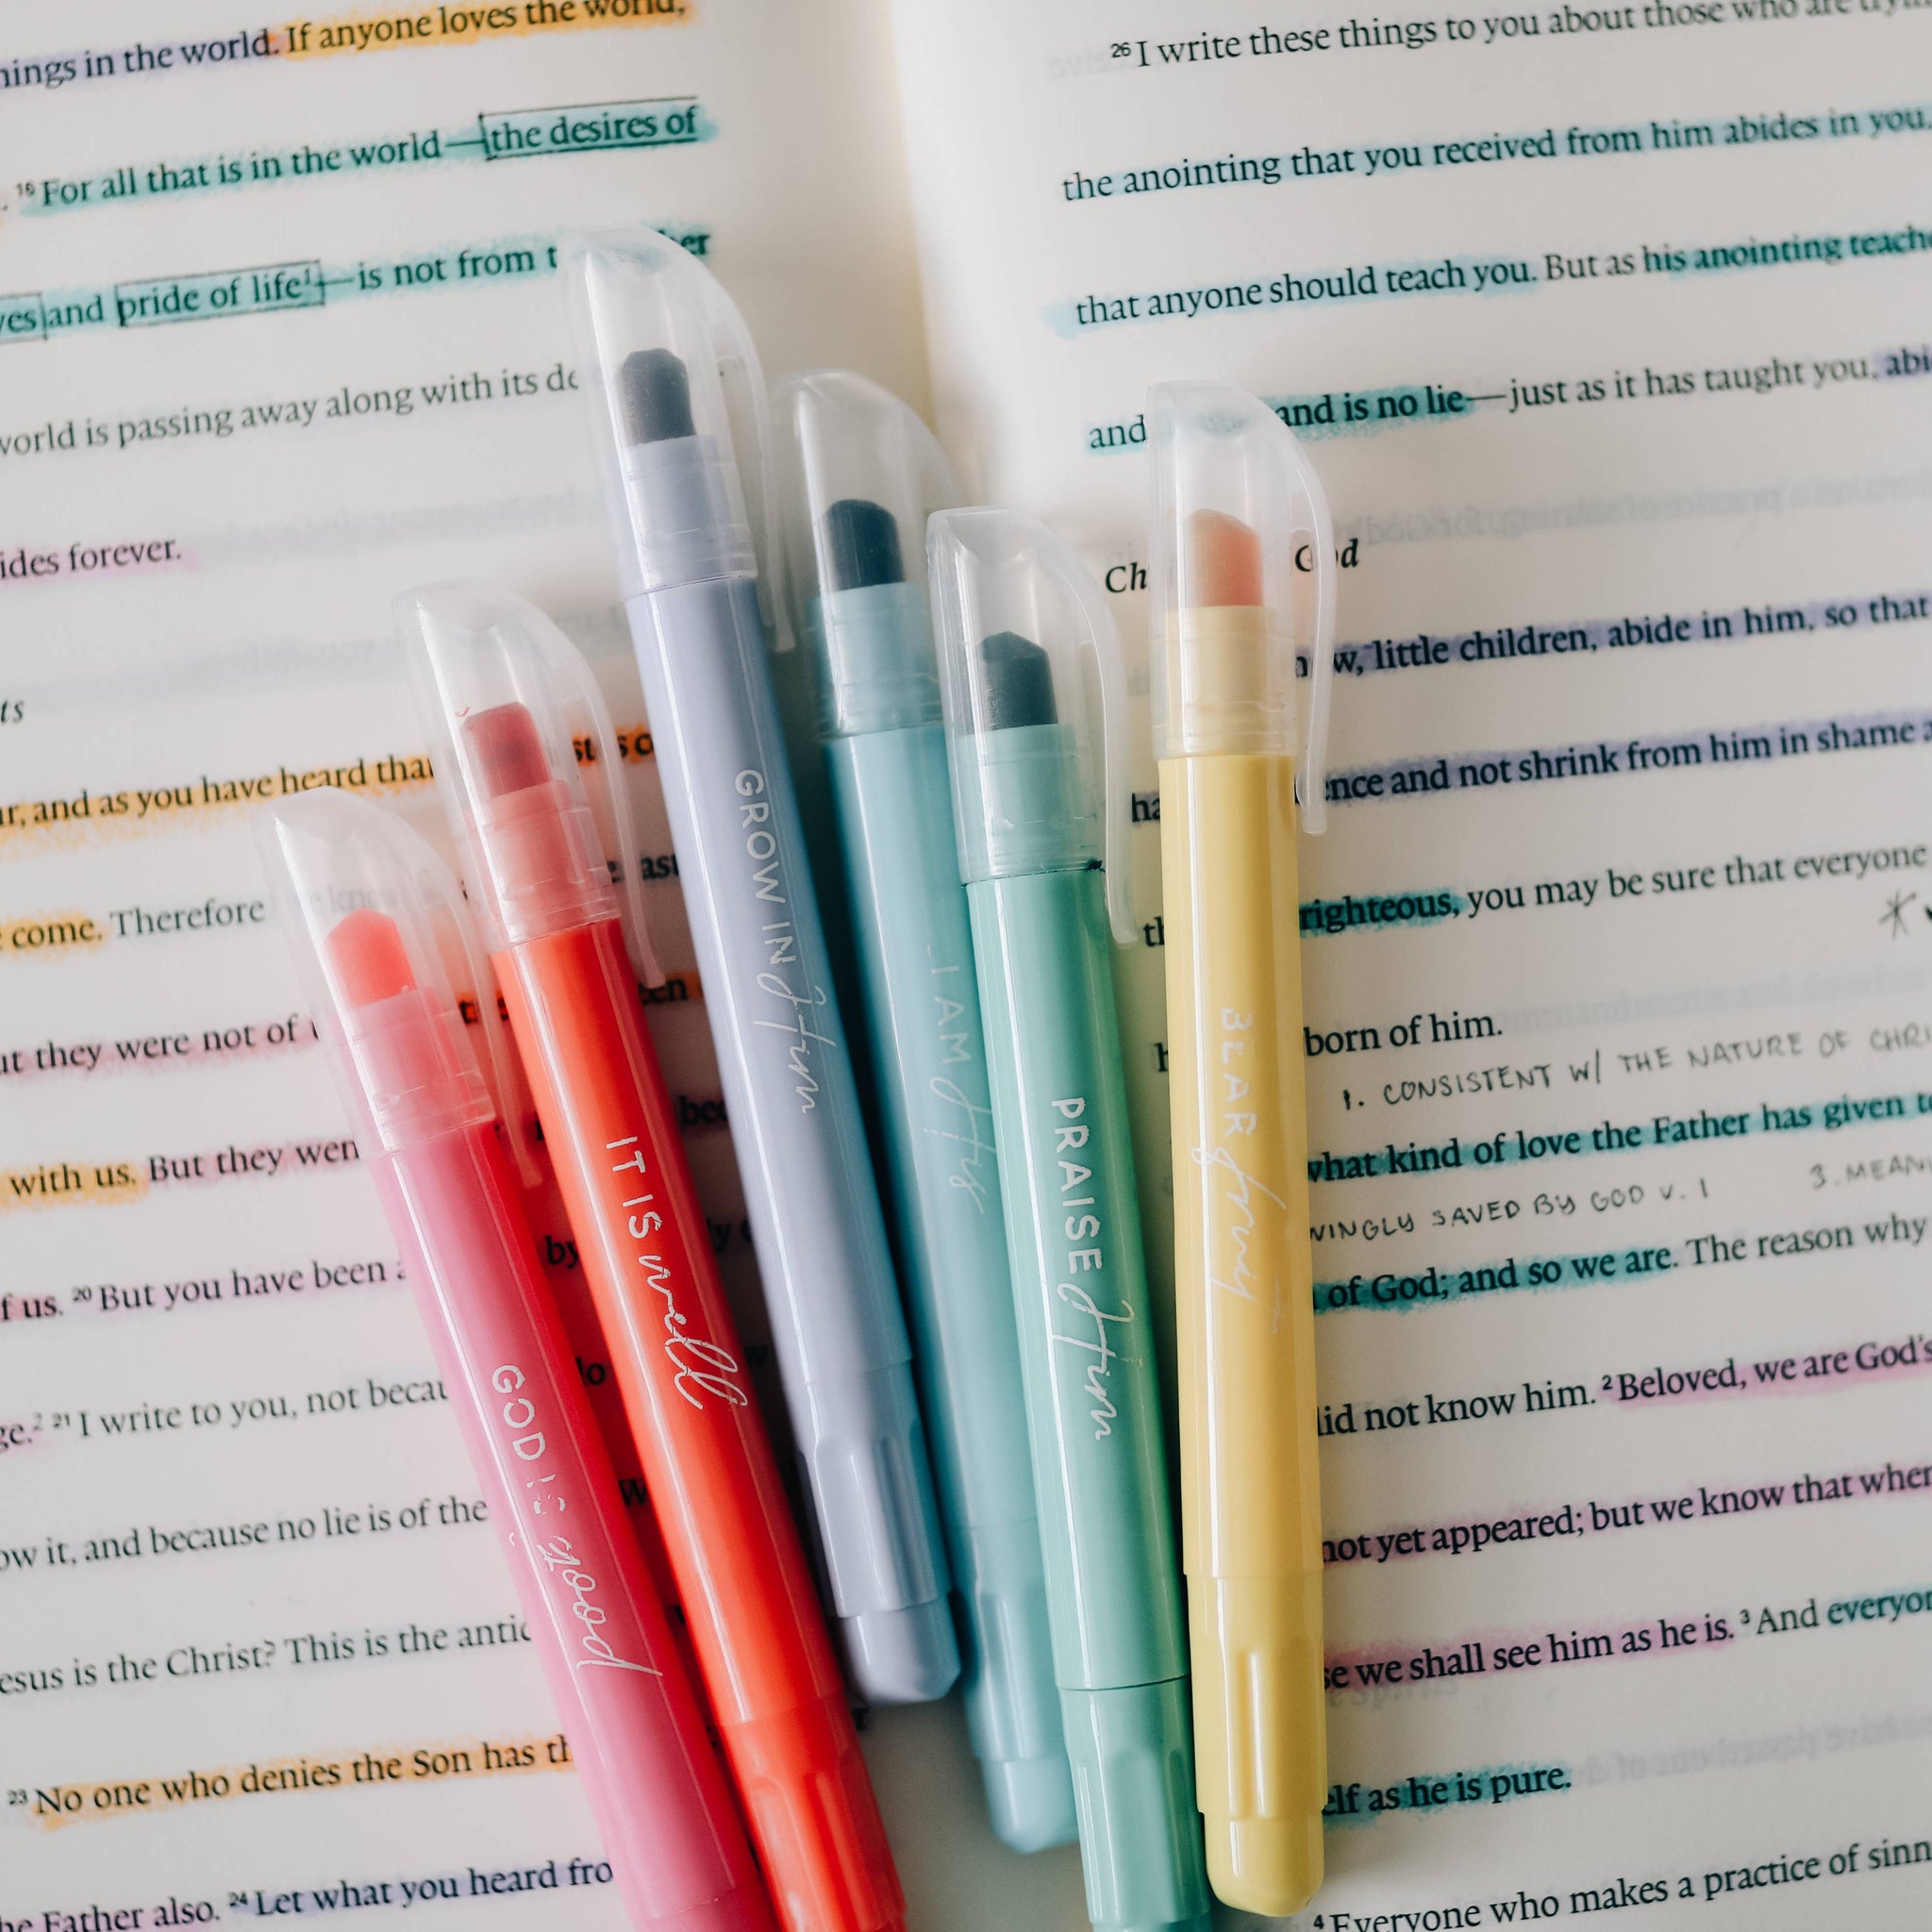 ings in the world. If anyone loves the world,
. 16 For all that is in the world—the desires of
yes and pride of life1—is not from t er
world is passing away along with its de
ides forever.
ts
ur, and as you have heard that st is co
come. Therefore we know ast
ut they were not of een
with us. But they wen bec
f us. 20 But you have been a by
ge.2 21 I write to you, not becau do
ow it, and because no lie is of the W
esus is the Christ? This is the antic
23 No one who denies the Son has th
he Father also. 24 Let what you heard fro
26 I write these things to you about those who are tryin
the anointing that you received from him abides in you,
that anyone should teach you. But as his anointing teache
and and is no lie—just as it has taught you, abi
Ch God
now, little children, abide in him, so that
ha ence and not shrink from him in shame a
th righteous, you may be sure that everyone
born of him.
1. CONSISTENT W/ THE NATURE OF CHRI
what kind of love the Father has given to
VINGLY SAVED BY GOD V. 1 3. MEANI
of God; and so we are. The reason why
did not know him. 2 Beloved, we are God's
not yet appeared; but we know that when
se we shall see him as he is. 3 And everyon
elf as he is pure.
4 Everyone who makes a practice of sinn
GOD IS good
IT IS well
GROW IN Him
I AM His
PRAISE Him
BEAR fruit